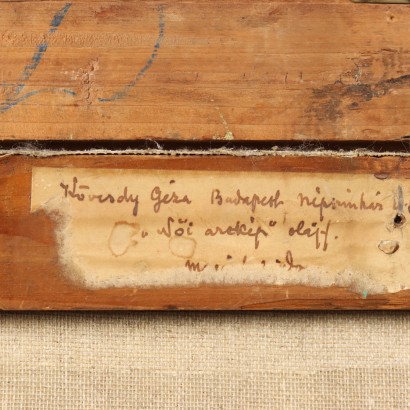 Kövesdy Géza Budapest Népszinház u.
"Női arckép" olajf.